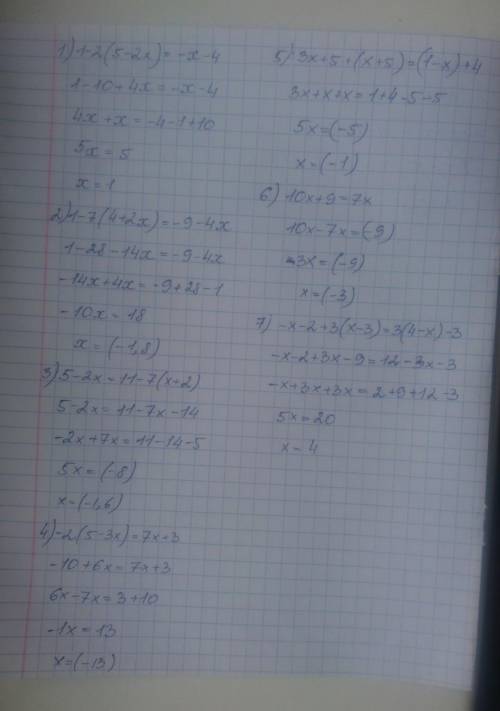 1) 1-2(5-2x)=-x-4
1-10+4x=-x-4
4x+x=-4-1+10
5x=5
x=1
2) 1-7(4+2x)=-9-4x
1-28-14x=-9-4x
-14x+4x=-9+28-1
-10x=18
x=(-1,8)
3) 5-2x=11-7(x+2)
5-2x=11-7x-14
-2x+7x=11-14-5
5x=(-8)
x=(-1,6)
4) -2(5-3x)=7x+3
-10+6x=7x+3
6x-7x=3+10
-1x=13
x=(-13)
5) 3x+5+(x+5)=(1-x)+4
3x+x+x=1+4-5-5
5x=(-5)
x=(-1)
6) 10x+9=7x
10x-7x=(-9)
3x=(-9)
x=(-3)
7) -x-2+3(x-3)=3(4-x)-3
-x-2+3x-9=12-3x-3
-x+3x+3x=2+9+12-3
5x=20
x=4